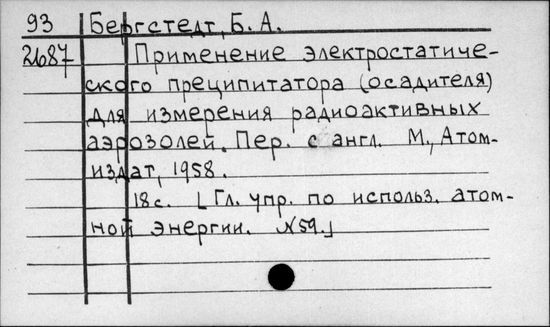 93 Бергстедт, Б. А.
2687 Применение электростатиче-
ского преципитатора (осадителя)
для измерения радиоактивных
аэрозолей. Пер. с англ. М., Атом-
издат, 1958.
18 с. [Гл. упр. по использ. атом-
ной энергии. №59.]